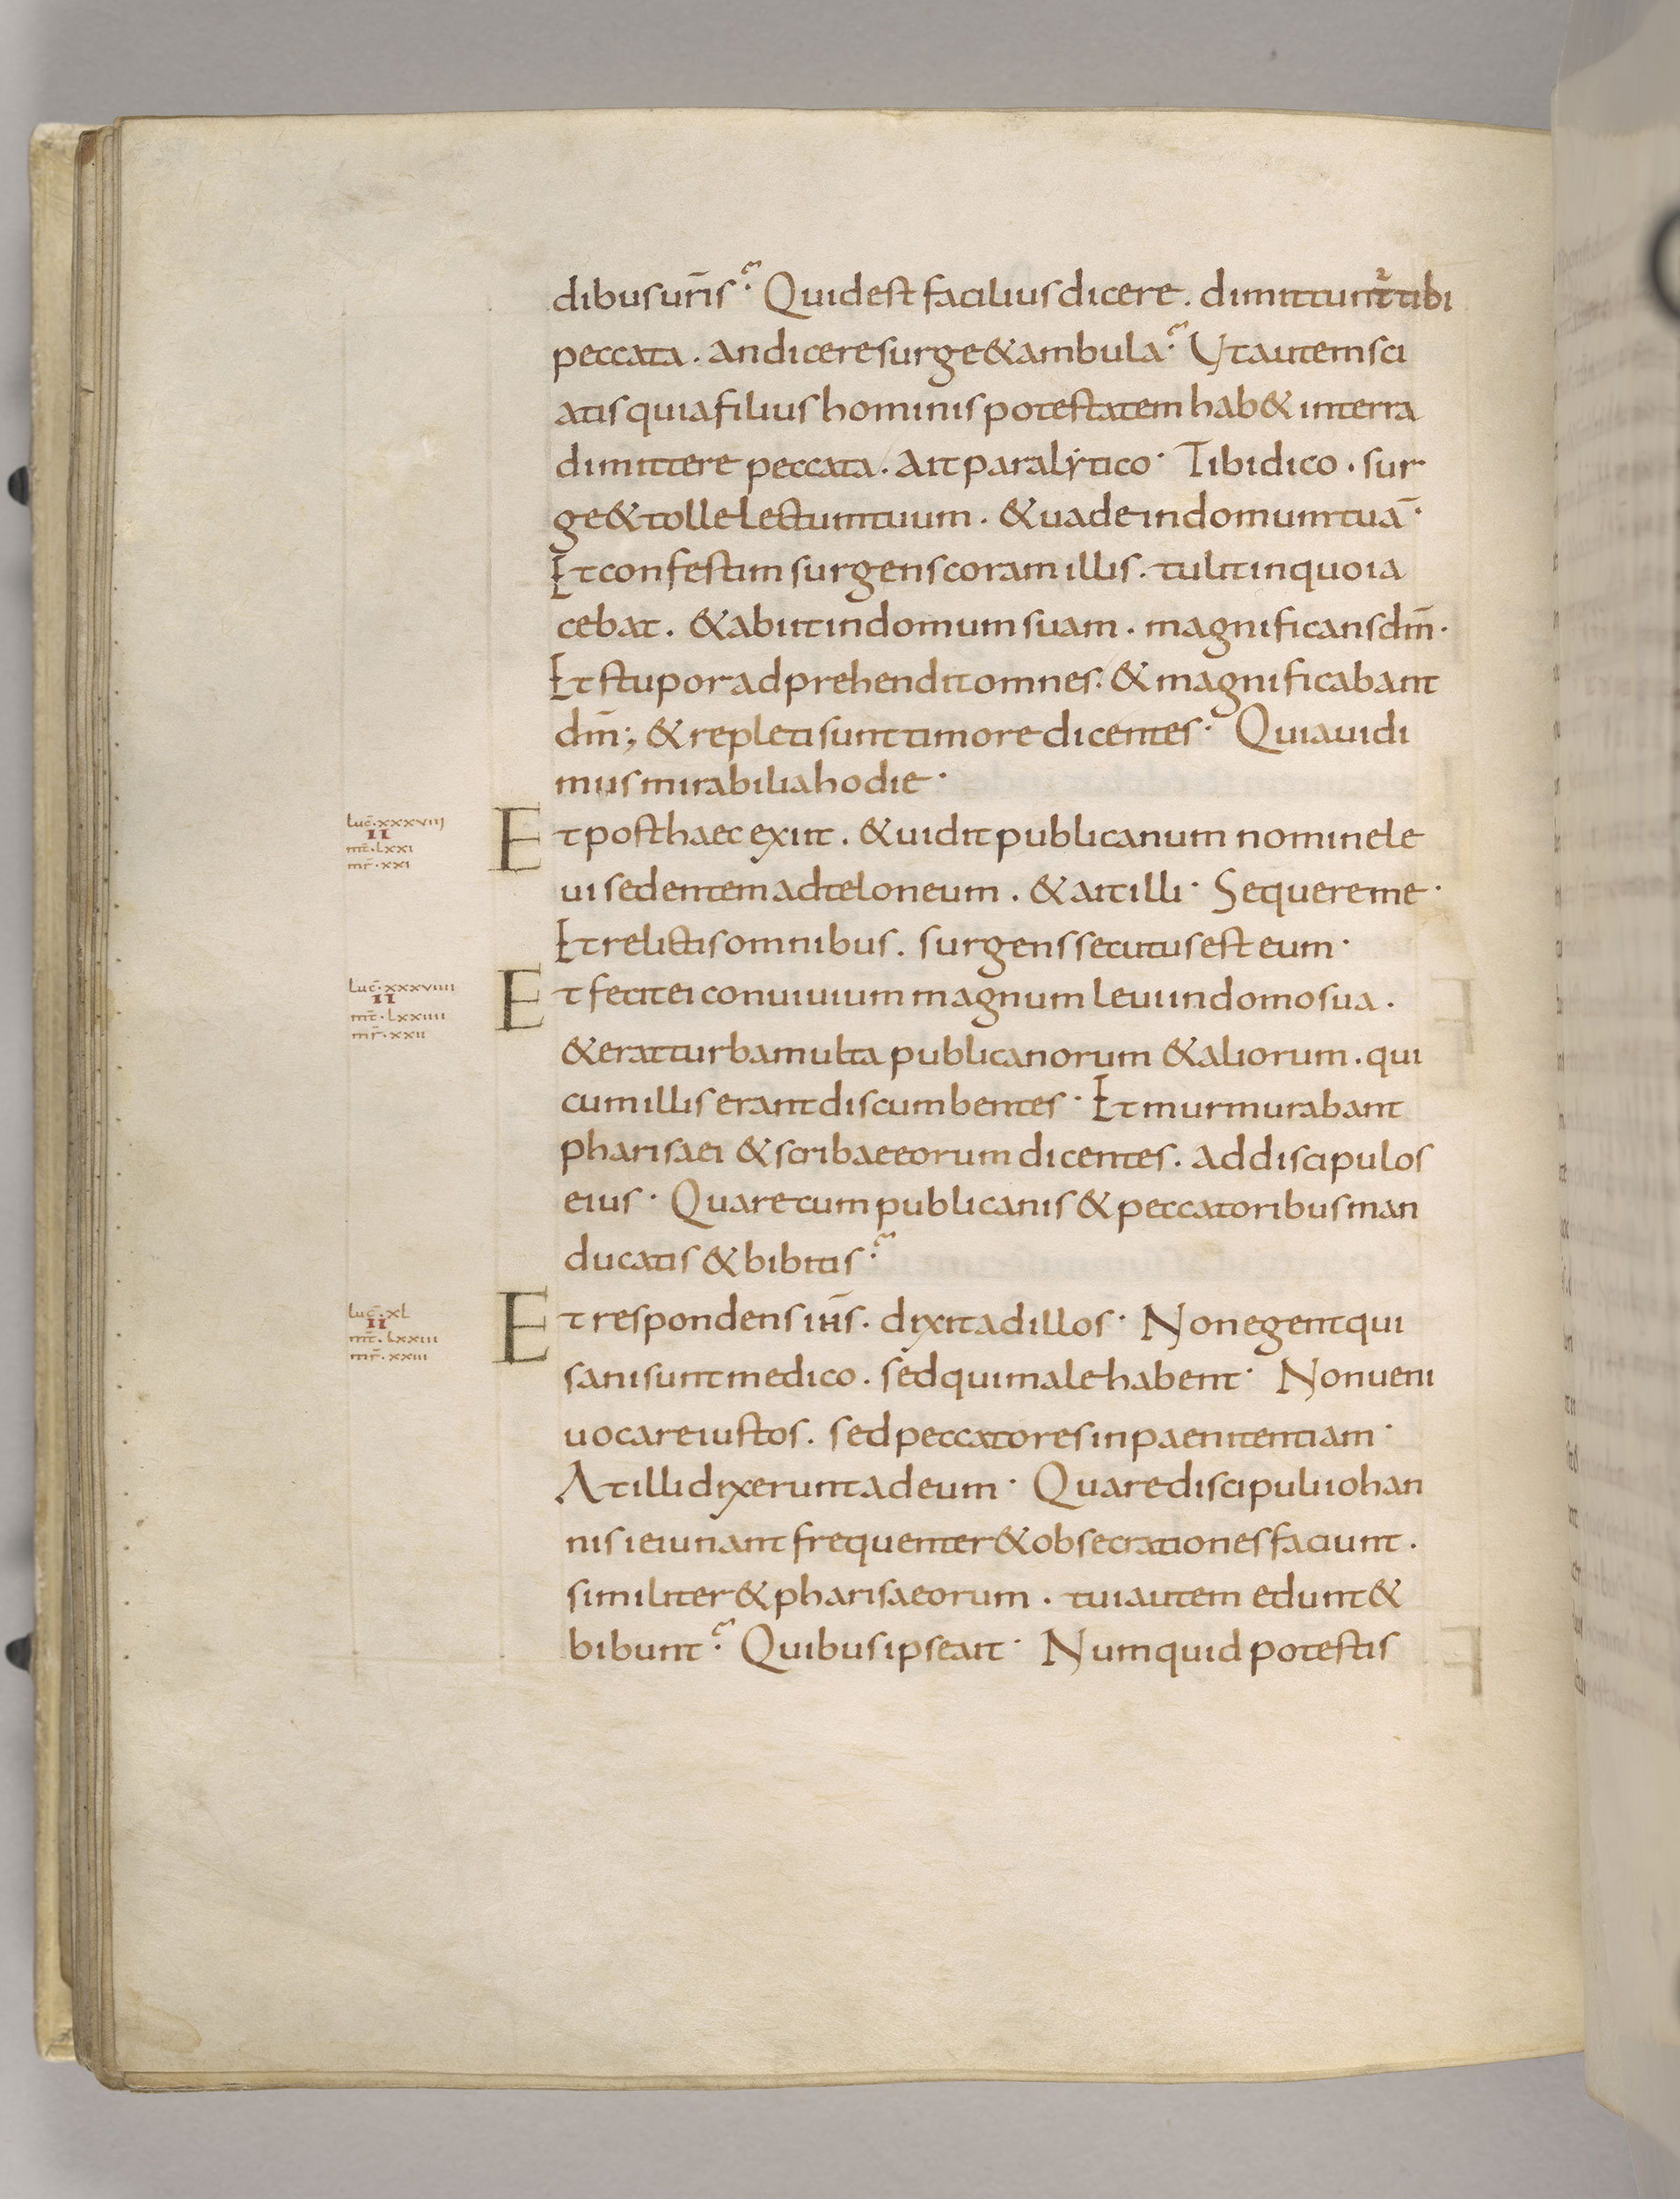 dibus ur̄is? Quid est facilius dicere. dimittunt̄ tibi
peccata. an dicere surge & ambula? Ut autem sci
atis quia filius hominis potestatem hab& in terra
dimittere peccata. Ait paralẏtico· Tibi dico. sur
ge & tolle lectum tuum. & uade in domum tuā·
Et confestim surgens coram illis. tulit in quo ia
cebat. & abiit in domum suam. magnificans dm̄·
Et stupor adprehendit omnes. & magnificabant
dm̄; & repleti sunt timore dicentes· Quia uidi
mus mirabilia hodie·
Luc̄·xxxviij
II
mt̄·lxxi
mr̄·xxi
Et post haec exiit. & uidit publicanum nomine le
ui sedentem ad teloneum. & ait illi· Sequere me·
Et relictis omnibus. surgens secutus est eum·
Luc̄·xxxviiii
II
mt̄·lxxiiii
mr̄·xxii
Et fecit ei conuiuium magnum leui in domo sua.
& erat turba multa publicanorum & aliorum. qui
cum illis erant discumbentes· Et murmurabant
pharisaei & scribae eorum dicentes. ad discipulos
eius· Quare cum publicanis & peccatoribus man
ducatis & bibitis?
Luc̄·xl
II
mt̄·lxxiii
mr̄·xxiii
Et respondens ih̄s. dixit ad illos· Non egent qui
sani sunt medico. sed qui male habent· Non ueni
uocare iustos. sed peccatores in paenitentiam·
At illi dixerunt ad eum· Quare discipuli iohan
nis ieiunant frequenter & obsecrationes faciunt.
similiter & pharisaeorum. tui autem edunt &
bibunt? Quibus ipse ait· Numquid potestis